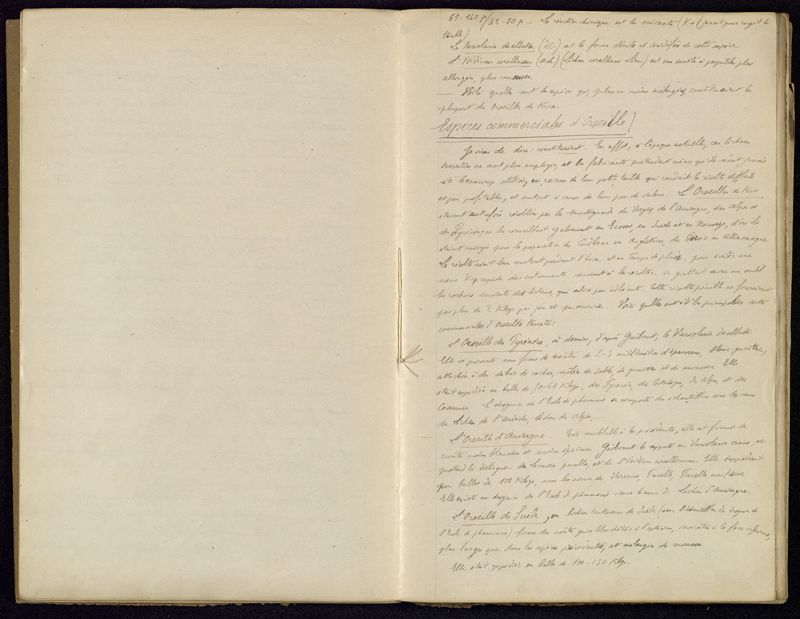 61-140 µ/42-80 µ. — La réaction chimique est la suivante (K+ (jaunit puis rougit le
thalle)
Le Variolaria dealbata (DC) est la forme stérile et isidifère de cette espèce
L'Isidium corallinum (Ach) (Lichen corallinus Linn) est une variété à papilles plus
allongées, plus rameuses.
— Voilà quelles sont les espèces qui, plus ou moins mélangées, constituaient la
plupart des Orseilles de terre.
Espèces commerciales d'Orseille
Je viens de dire: constituaient. En effet, à l'époque actuelle, ces lichens
terrestres ne sont plus employés, et les fabricants prétendent même qu'ils n'ont jamais
été beaucoup utilisés, en raison de leur petite taille qui rendait la récolte difficile
et peu profitable, et surtout à cause de leur peu de valeur. L'Orseille de terre
étaient autrefois récoltées par les montagnards des Vosges, de l'Auvergne, des Alpes et
des Pyrénées, on les recueillait également en Ecosse, en Suède et en Norwège, d'où ils
étaient envoyés pour la préparation du Cudbear en Angleterre, du Persio en Allemagne
La récolte avait lieu surtout pendant l'hiver, et en temps de pluie, pour
les rochers couverts des lichens, Cette récolte pénible ne fournissait
pas plus de 2 Kilogs par jour et par ouvrier. Voici quelles ont été les principales sortes
commerciales d'Orseille terrestre:
L'Orseille des Pyrénées, a donné, d'après Guibourt, le Variolaria dealbata.
Elle se présente sous forme de croûtes de 2-3 millimètres d'épaisseur, blanc-grisâtre,
attachées à des débris de rocher, mêlées de sable, de graviers et de mousses. Elle
était expédiée en balles de 50-60 Kilogs, des Pyrénées, de Catalogne, des Alpes et des
Cévennes. Le droguier de l'Ecole de pharmacie en comporte des échantillons sous les noms
de Lichen de l'Ardèche, lichen des Alpes. —
L'Orseille d'Auvergne Très semblable à la précédente, elle est formée de
croûtes moins blanches et moins épaisses. Guibourt la rapporte au Variolaria orcina, et
prétend la distinguer du Lecanora parella, et de l'Isidium corallinum. Elle s'expédiait
par balles de 100 Kilogs, sous les noms de Varenne, Parelle, Parelle maîtresse
Elle existe au droguier de l'Ecole de pharmacie sous le nom de Lichen d'Auvergne.
L'Orseille de Suède, ou lichen tartareux de Suède (sous l'échantillon du droguier de
l'Ecole de pharmacie) forme des croûtes gris blanchâtre à l'extérieur, noirâtre à la face inférieure,
plus larges que dans les espèces précédentes, et mélangées de mousses
Elle était expédiée en balles de 100-130 Kilogs.